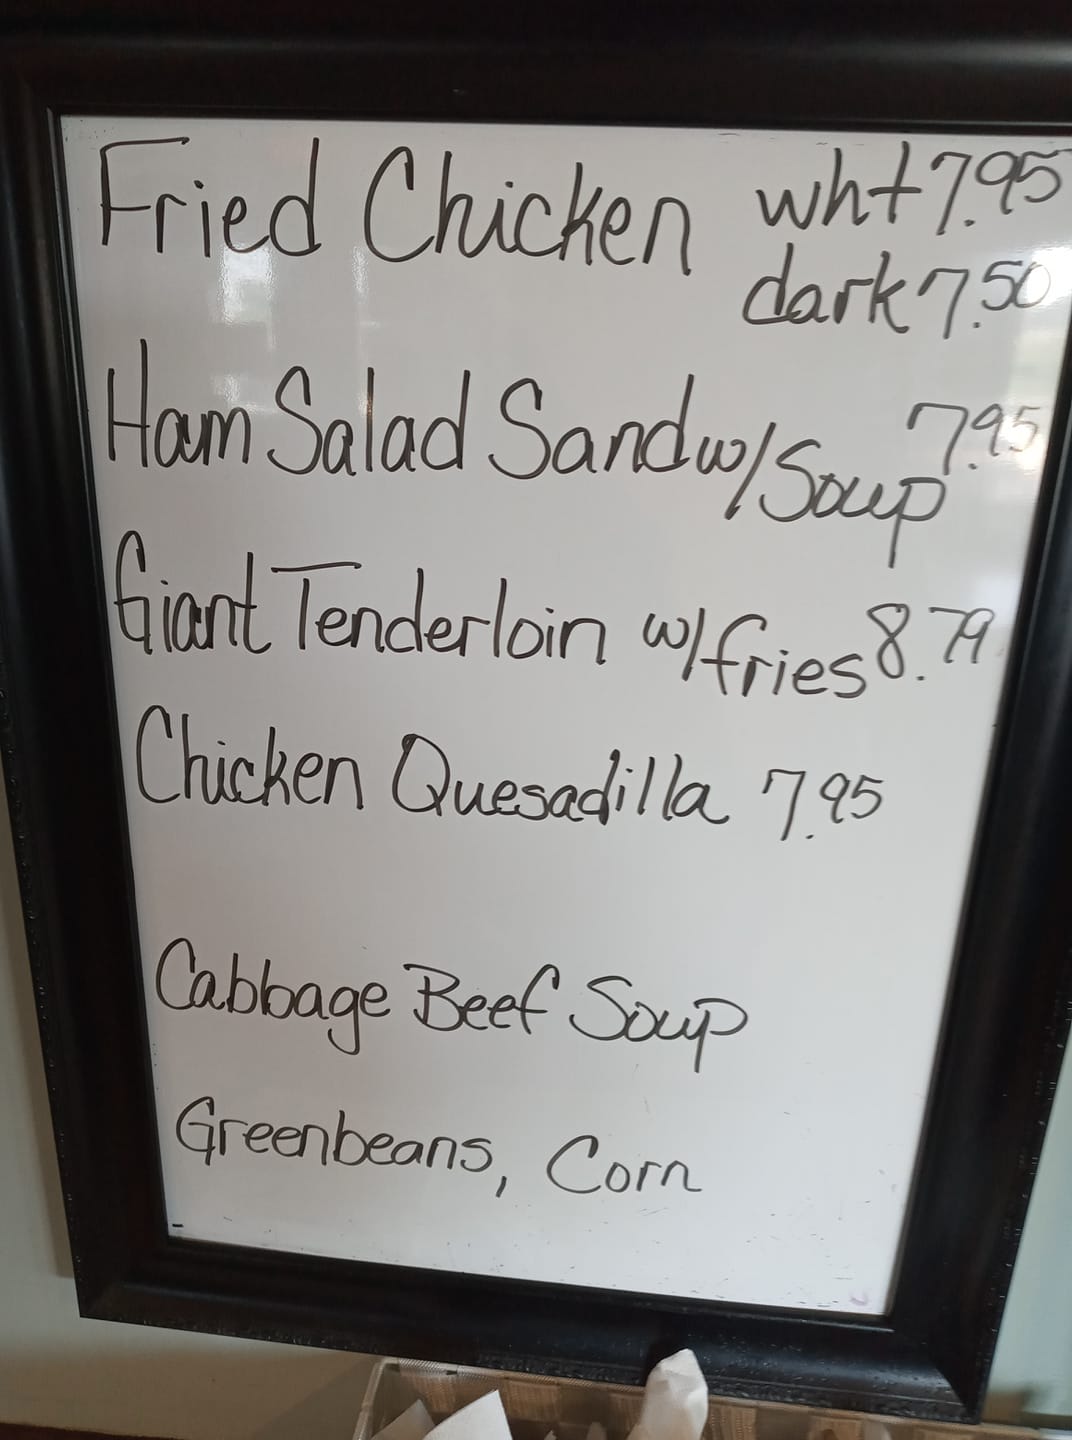 Fried Chicken wht 7.95
dark 7.50
Ham Salad Sand w/ Soup 7.95
Giant Tenderloin w/ fries 8.79
Chicken Quesadilla 7.95
Cabbage Beef Soup
Greenbeans, Corn